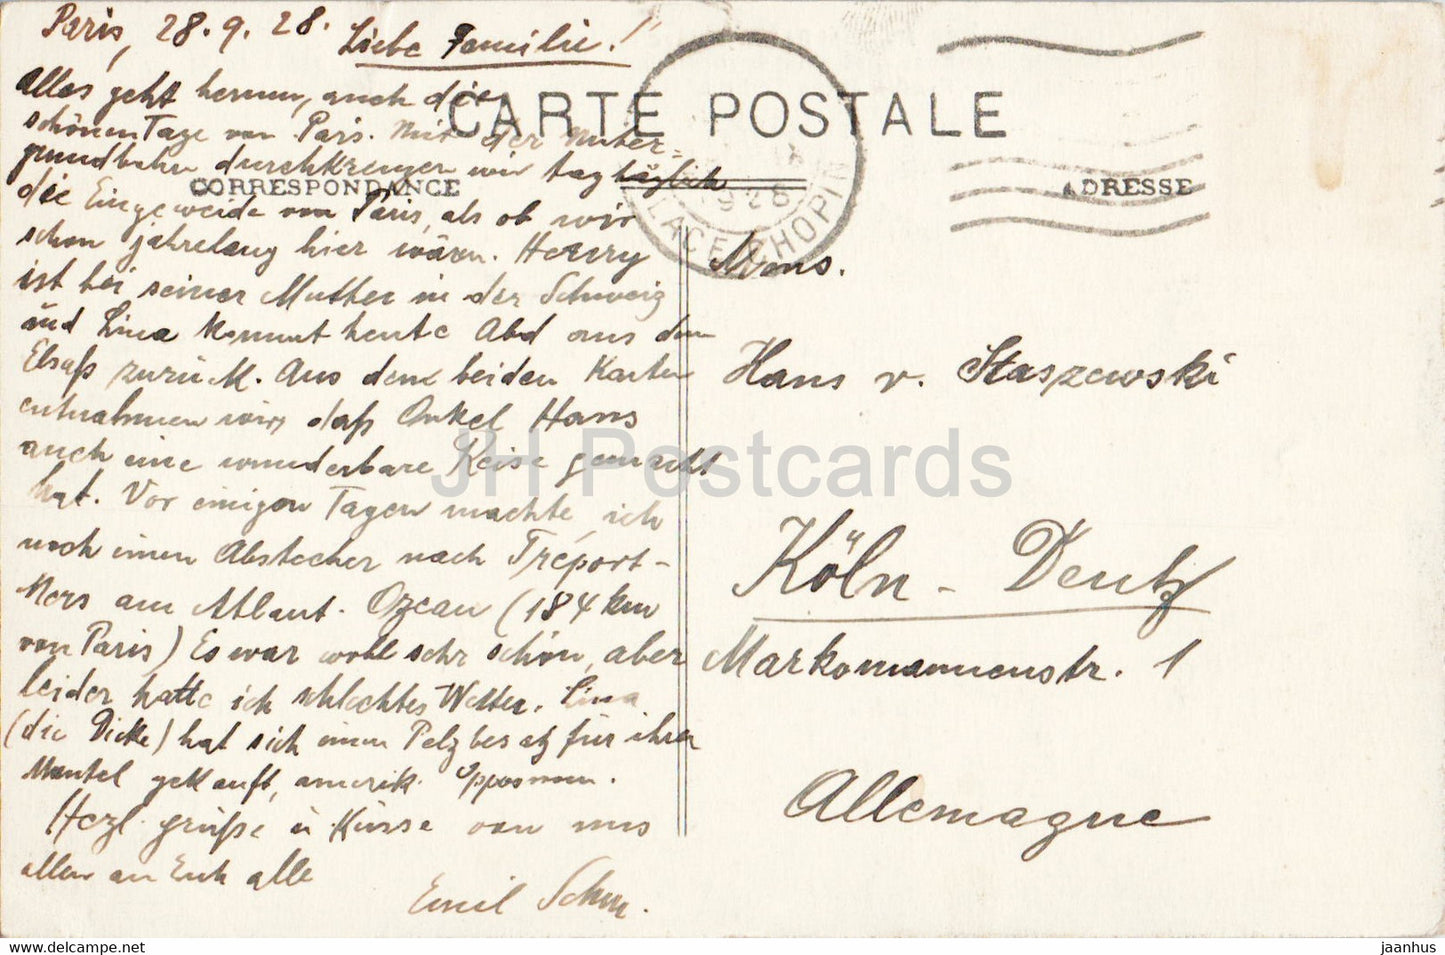 Paris, 28.9.28.
Liebe Familie!
alles geht herum, auch die
CARTE POSTALE
schönen Tage von Paris. Mit der Unter-
grundbahn durchkreuzen wir tagtäglich
CORRESPONDANCE
ADRESSE
die Eingeweide von Paris, als ob wir
schon jahrelang hier wären. Henry
ist bei seiner Mutter in der Schweiz
und Lina kommt heute Abd aus dem
Elsaß zurück. Aus den beiden Karten
entnahmen wir, daß Onkel Hans
auch eine wunderbare Reise gemacht
hat. Vor einigen Tagen machte ich
noch einen Abstecher nach Tréport-
Mers am Atlant. Ozean (184 km
von Paris) Es war wohl sehr schön, aber
leider hatte ich schlechtes Wetter. Lina
(die Dicke) hat sich einen Pelzbesatz für ihren
Mantel gekauft, amerik. Oppossum.
Herzl. grüße u Küsse von uns
allen an Euch alle
Emil Schm.
PLACE CHOPIN
1928
Mons.
Hans v. Staszewski
Köln - Deutz
Markomannenstr. 1
Allemagne
JH Postcards
https://www.delcampe.net
jaanhus